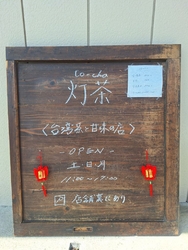 灯茶
〈台湾茶と甘味の店〉
OPEN
土・日・月
11:00~17:00
店舗裏にあり